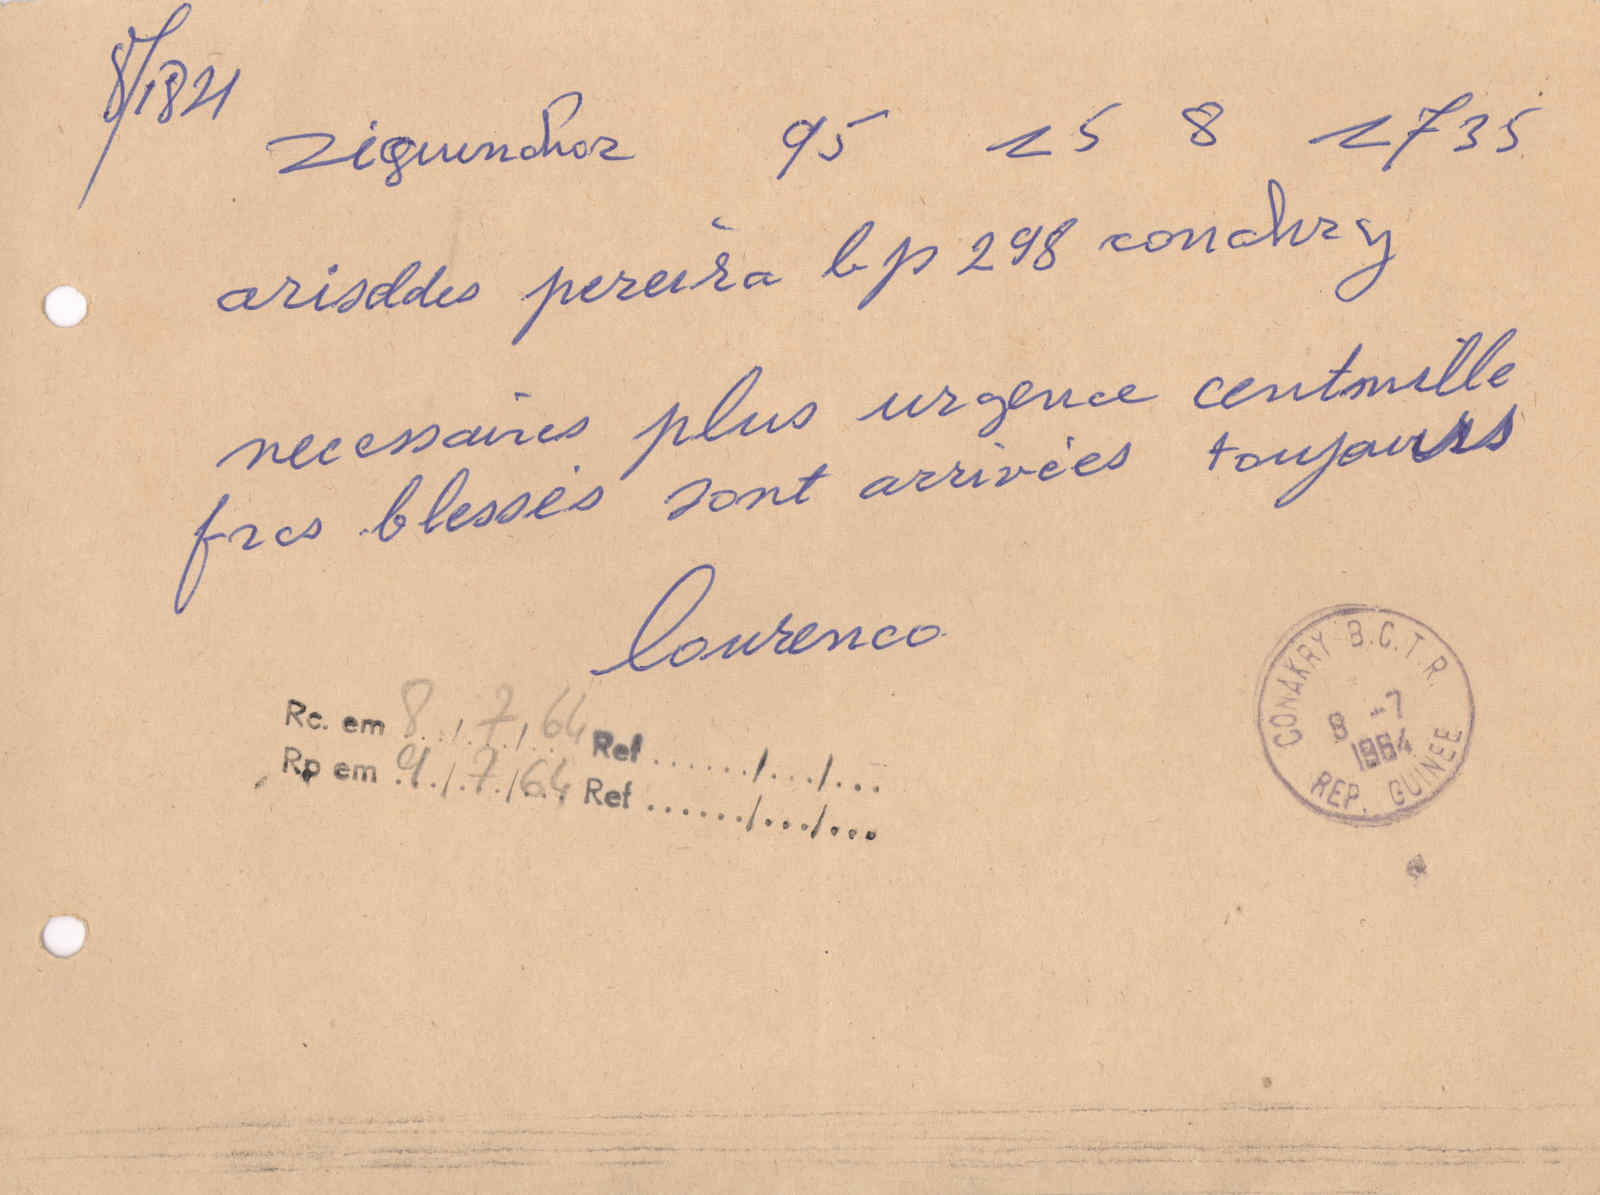 8/1821
ziguinchor 95 15 8 1735
aristides pereira bp 298 conakry
necessaires plus urgence centmille
frcs blessés sont arrivées toujours
lourenco
Rc. em 8/7/64 Ref ....../.../...
Rp em 9/7/64 Ref ....../.../...
CONAKRY B.C.T.R.
8 -7
1964
REP. GUINEE